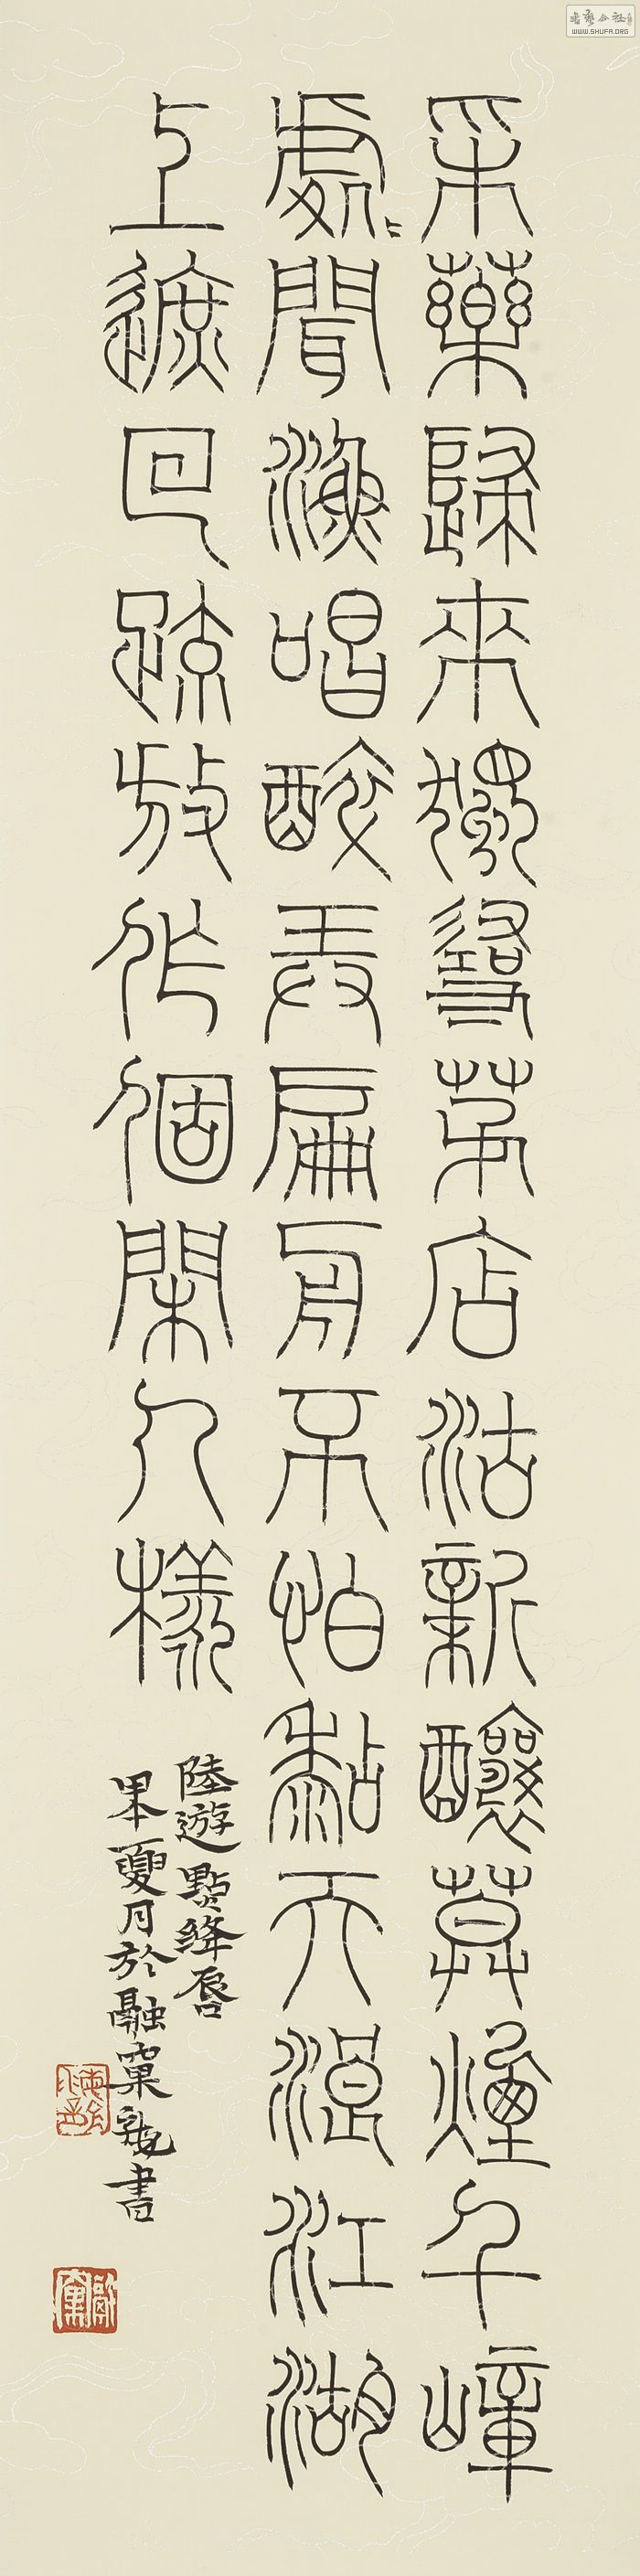 采藥歸來獨尋茅店沽新釀莫煙千嶂
處〻聞漁唱醉弄扁舟不怕黏天浪江湖
上遮回疏放作個閑人樣
陸遊點絳唇
夏月於融窠書
WWW.SHUFA.ORG